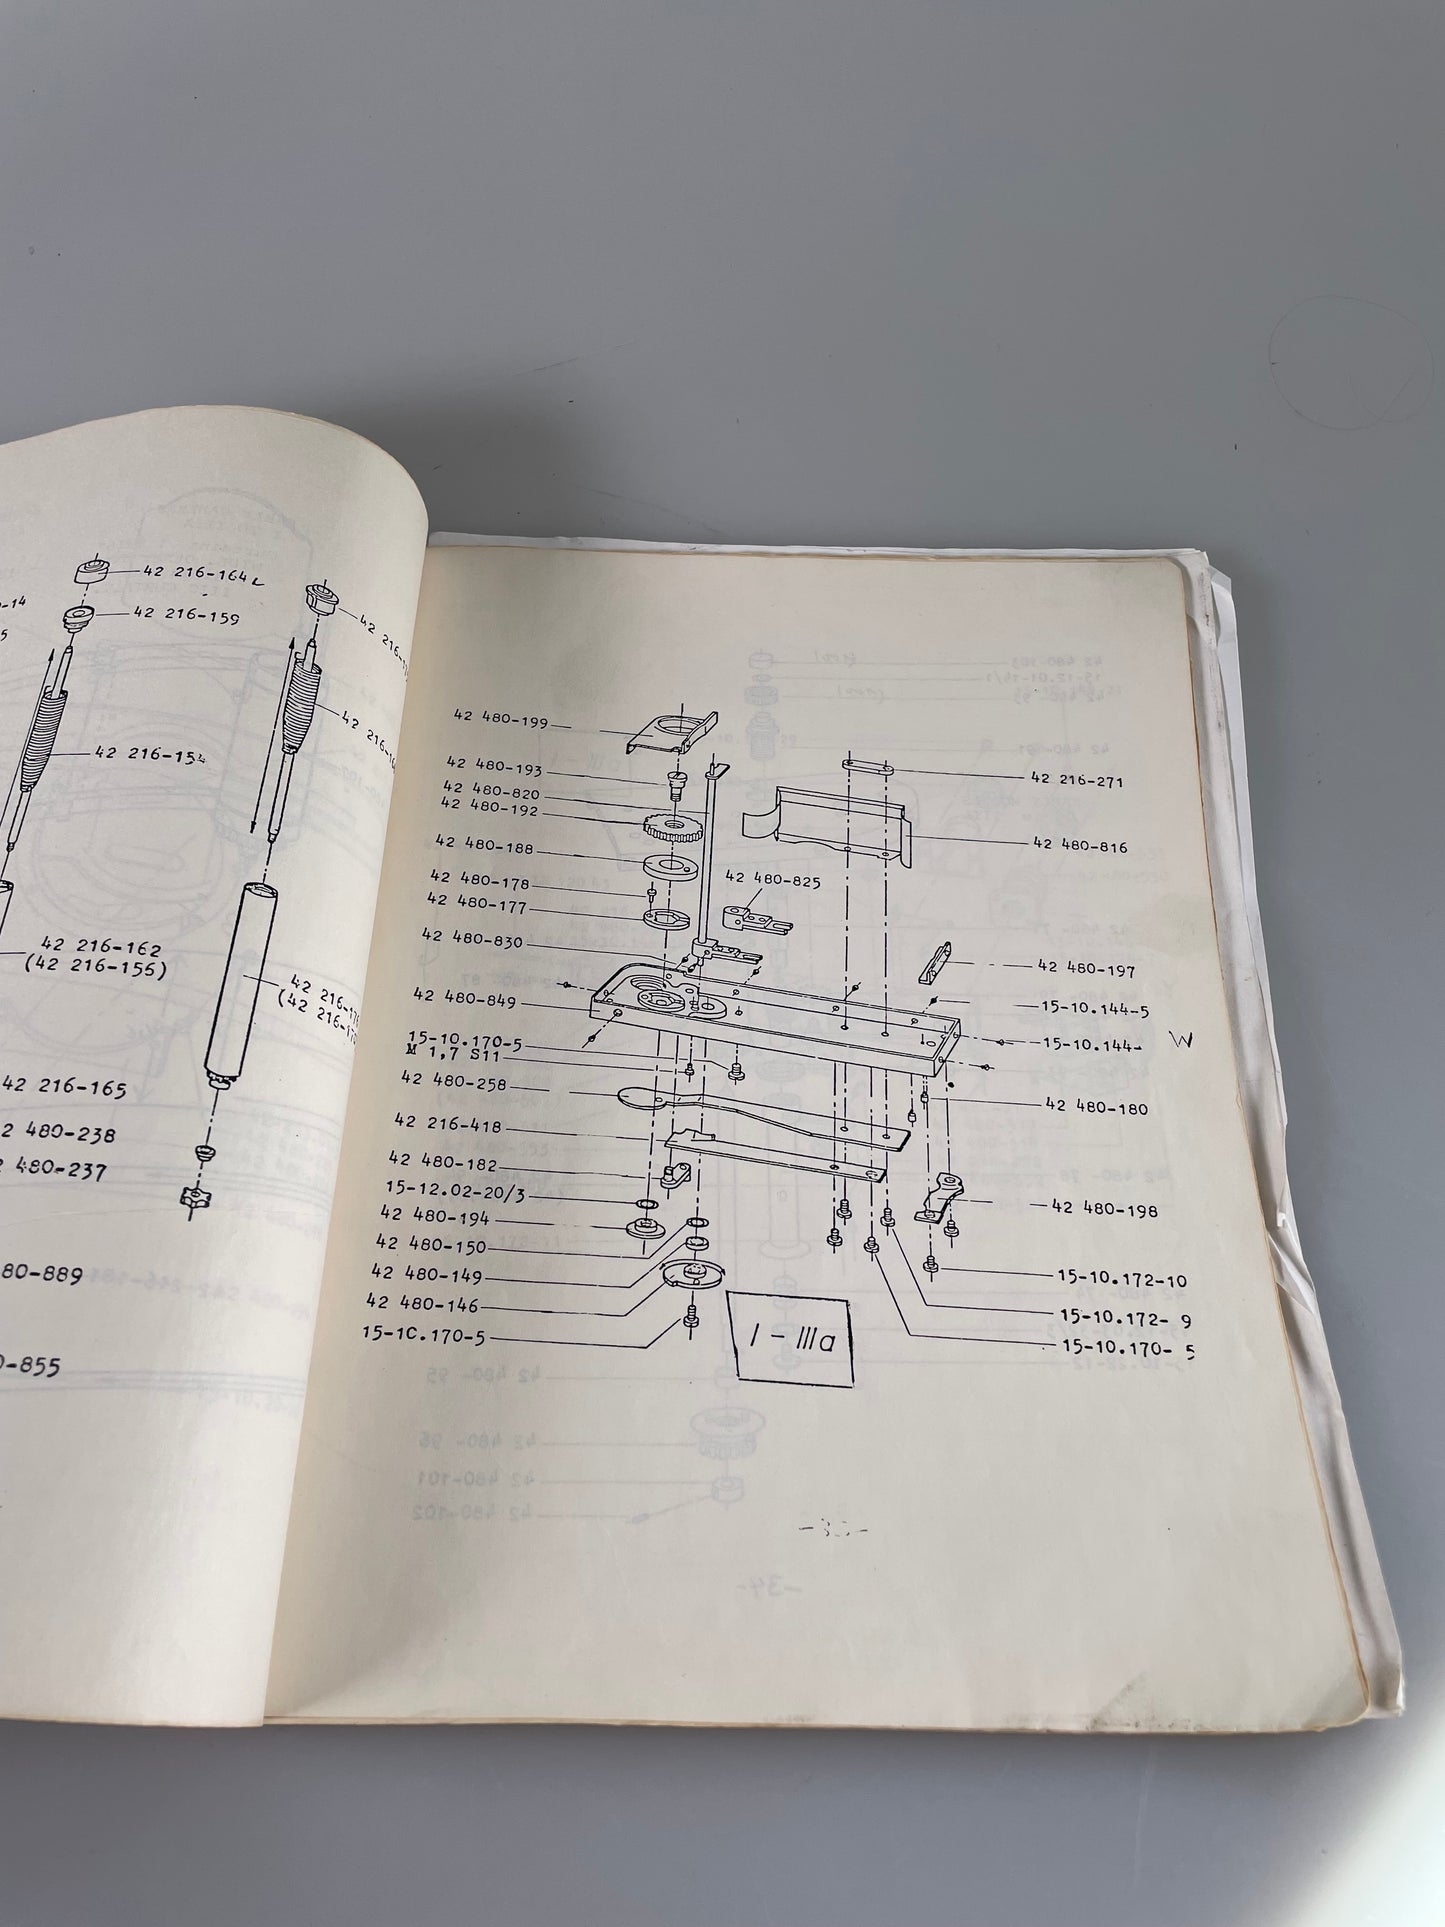 42 216-164
42 216-159
42 216-154
42 216-162
(42 216-156)
42 216-165
42 480-238
480-237
80-889
-855
42 480-199
42 480-193
42 480-820
42 480-192
42 480-188
42 480-178
42 480-177
42 480-830
42 480-849
15-10.170-5
M 1,7 S11
42 480-258
42 216-418
42 480-182
15-12.02-20/3
42 480-194
42 480-150
42 480-149
42 480-146
15-1C.170-5
42 480-825
42 216-271
42 480-816
42 480-197
15-10.144-5
15-10.144-
W
42 480-180
42 480-198
15-10.172-10
15-10.172- 9
15-10.170- 5
I - IIIa